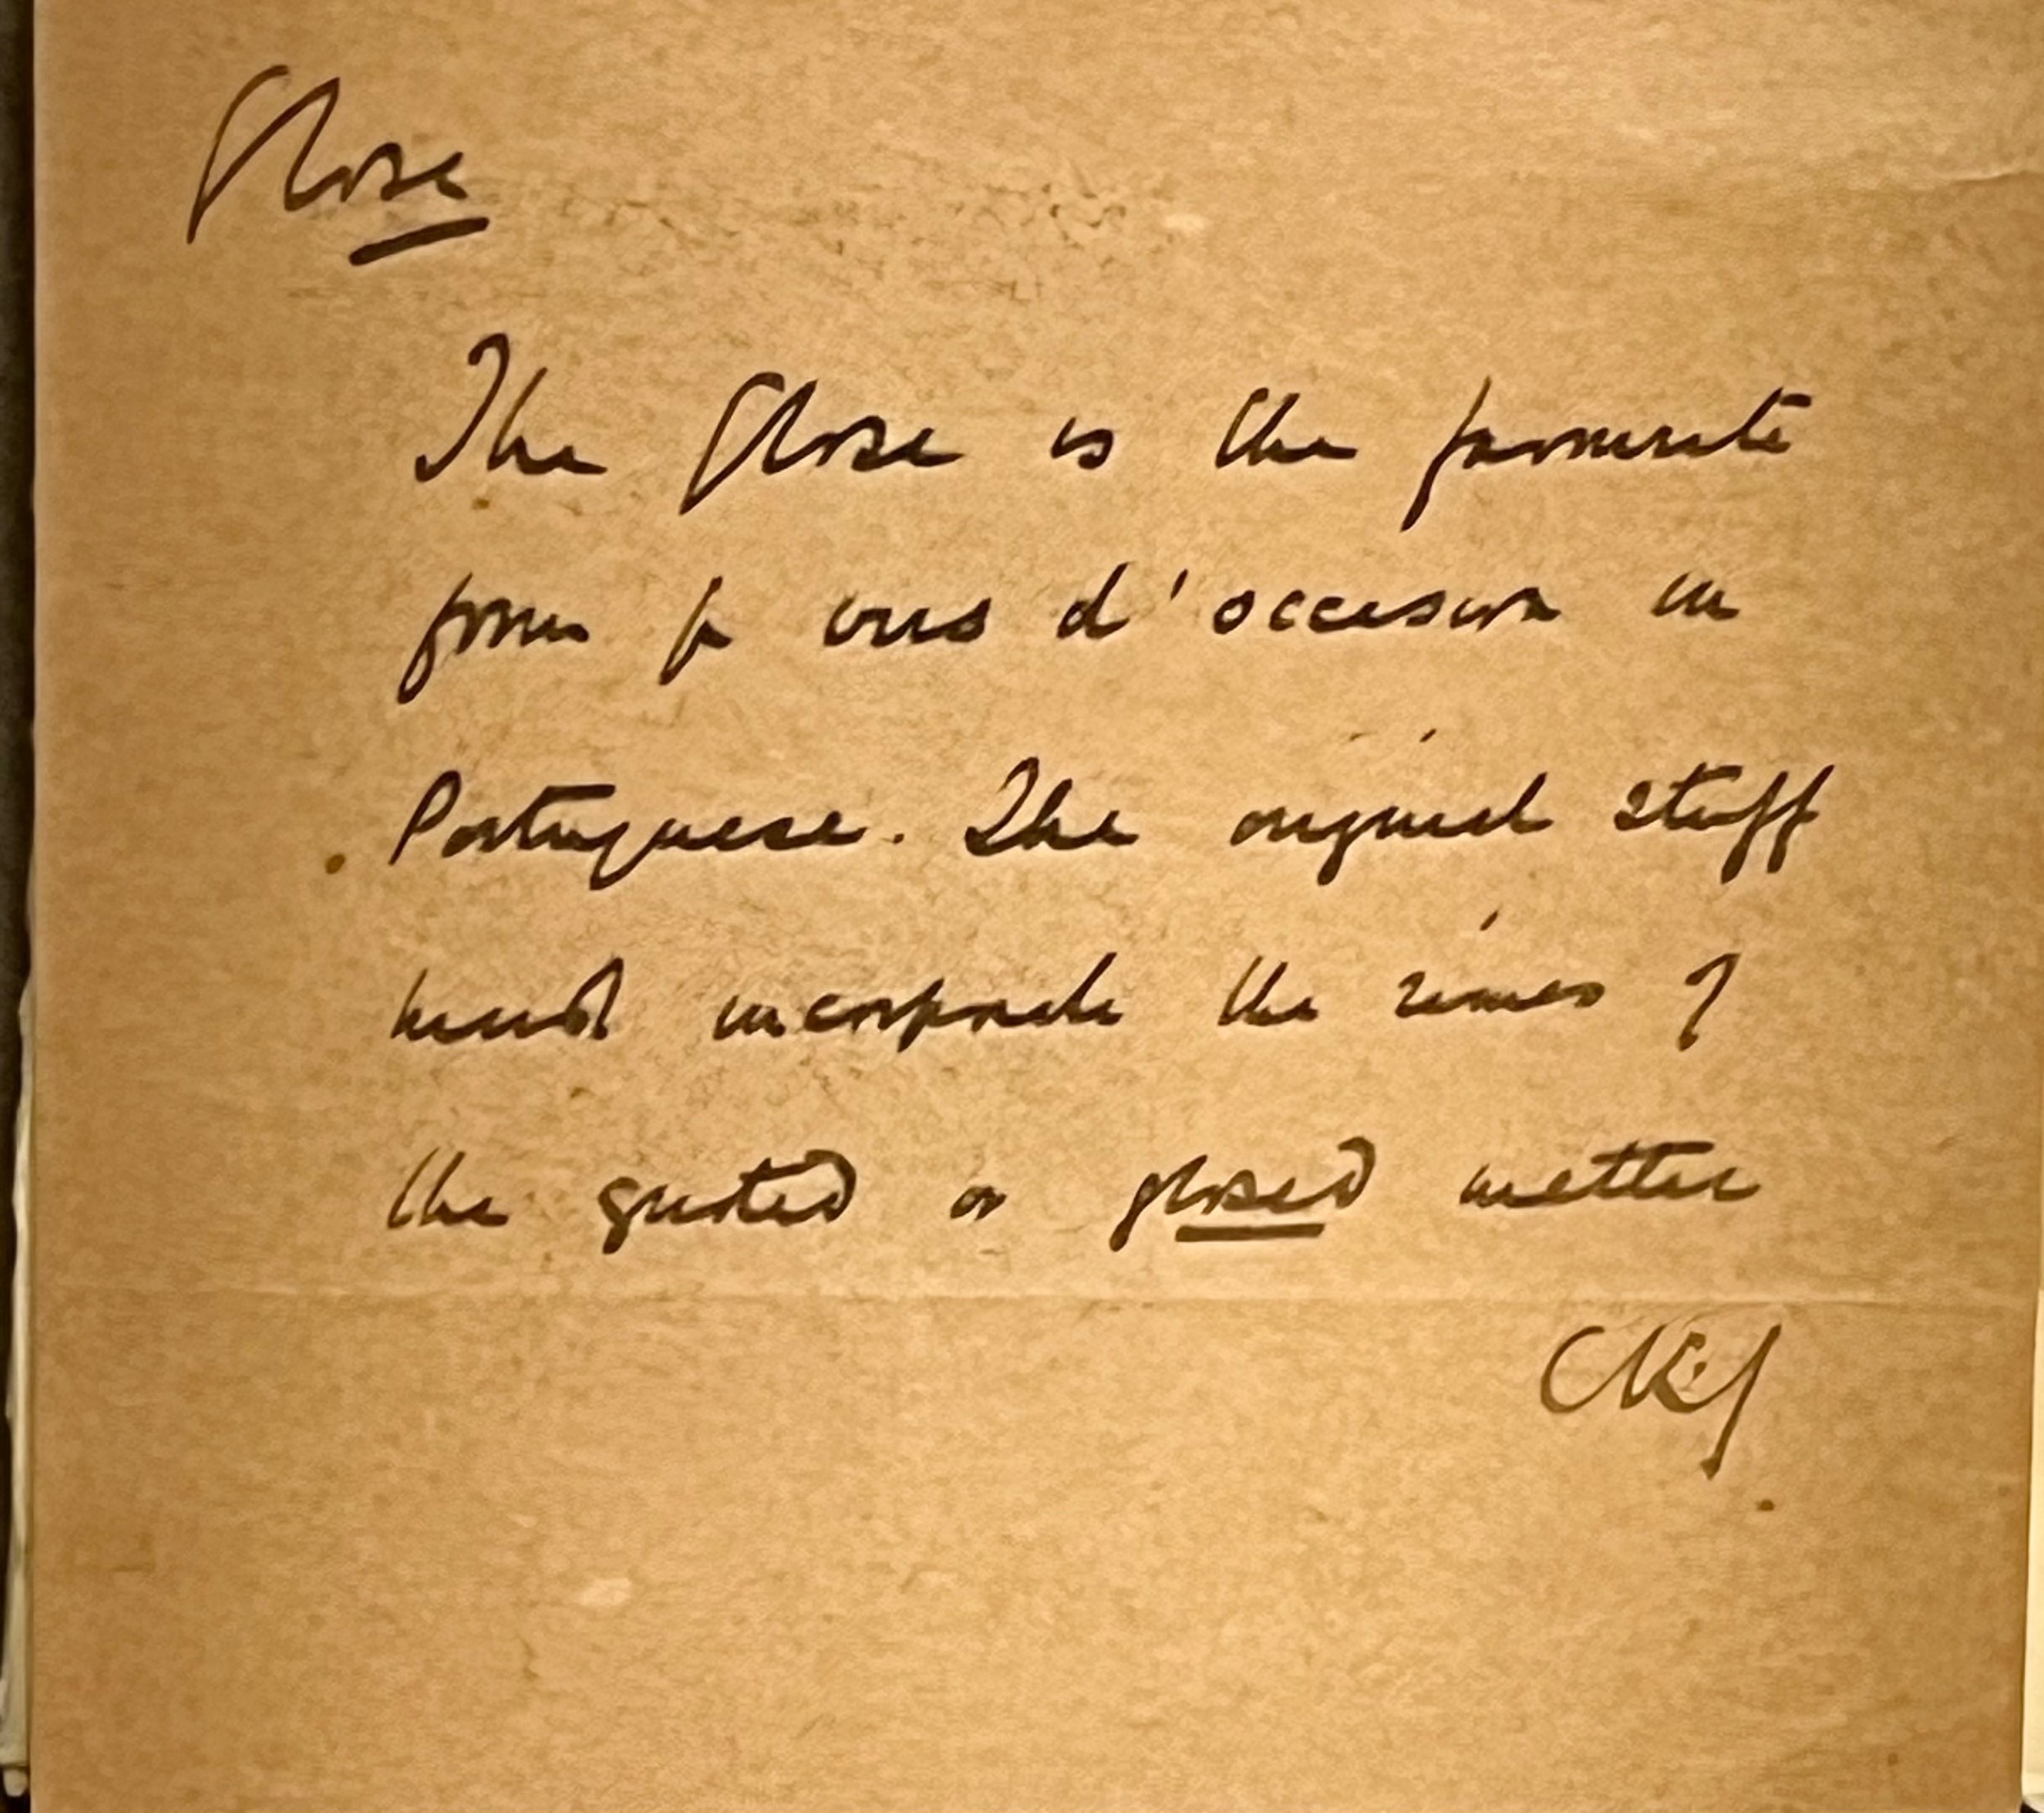 Glose
The Glose is the favourite
form for vers d'occasion in
Portuguese. The original stuff
must incorporate the rimes of
the quoted or glosed matter